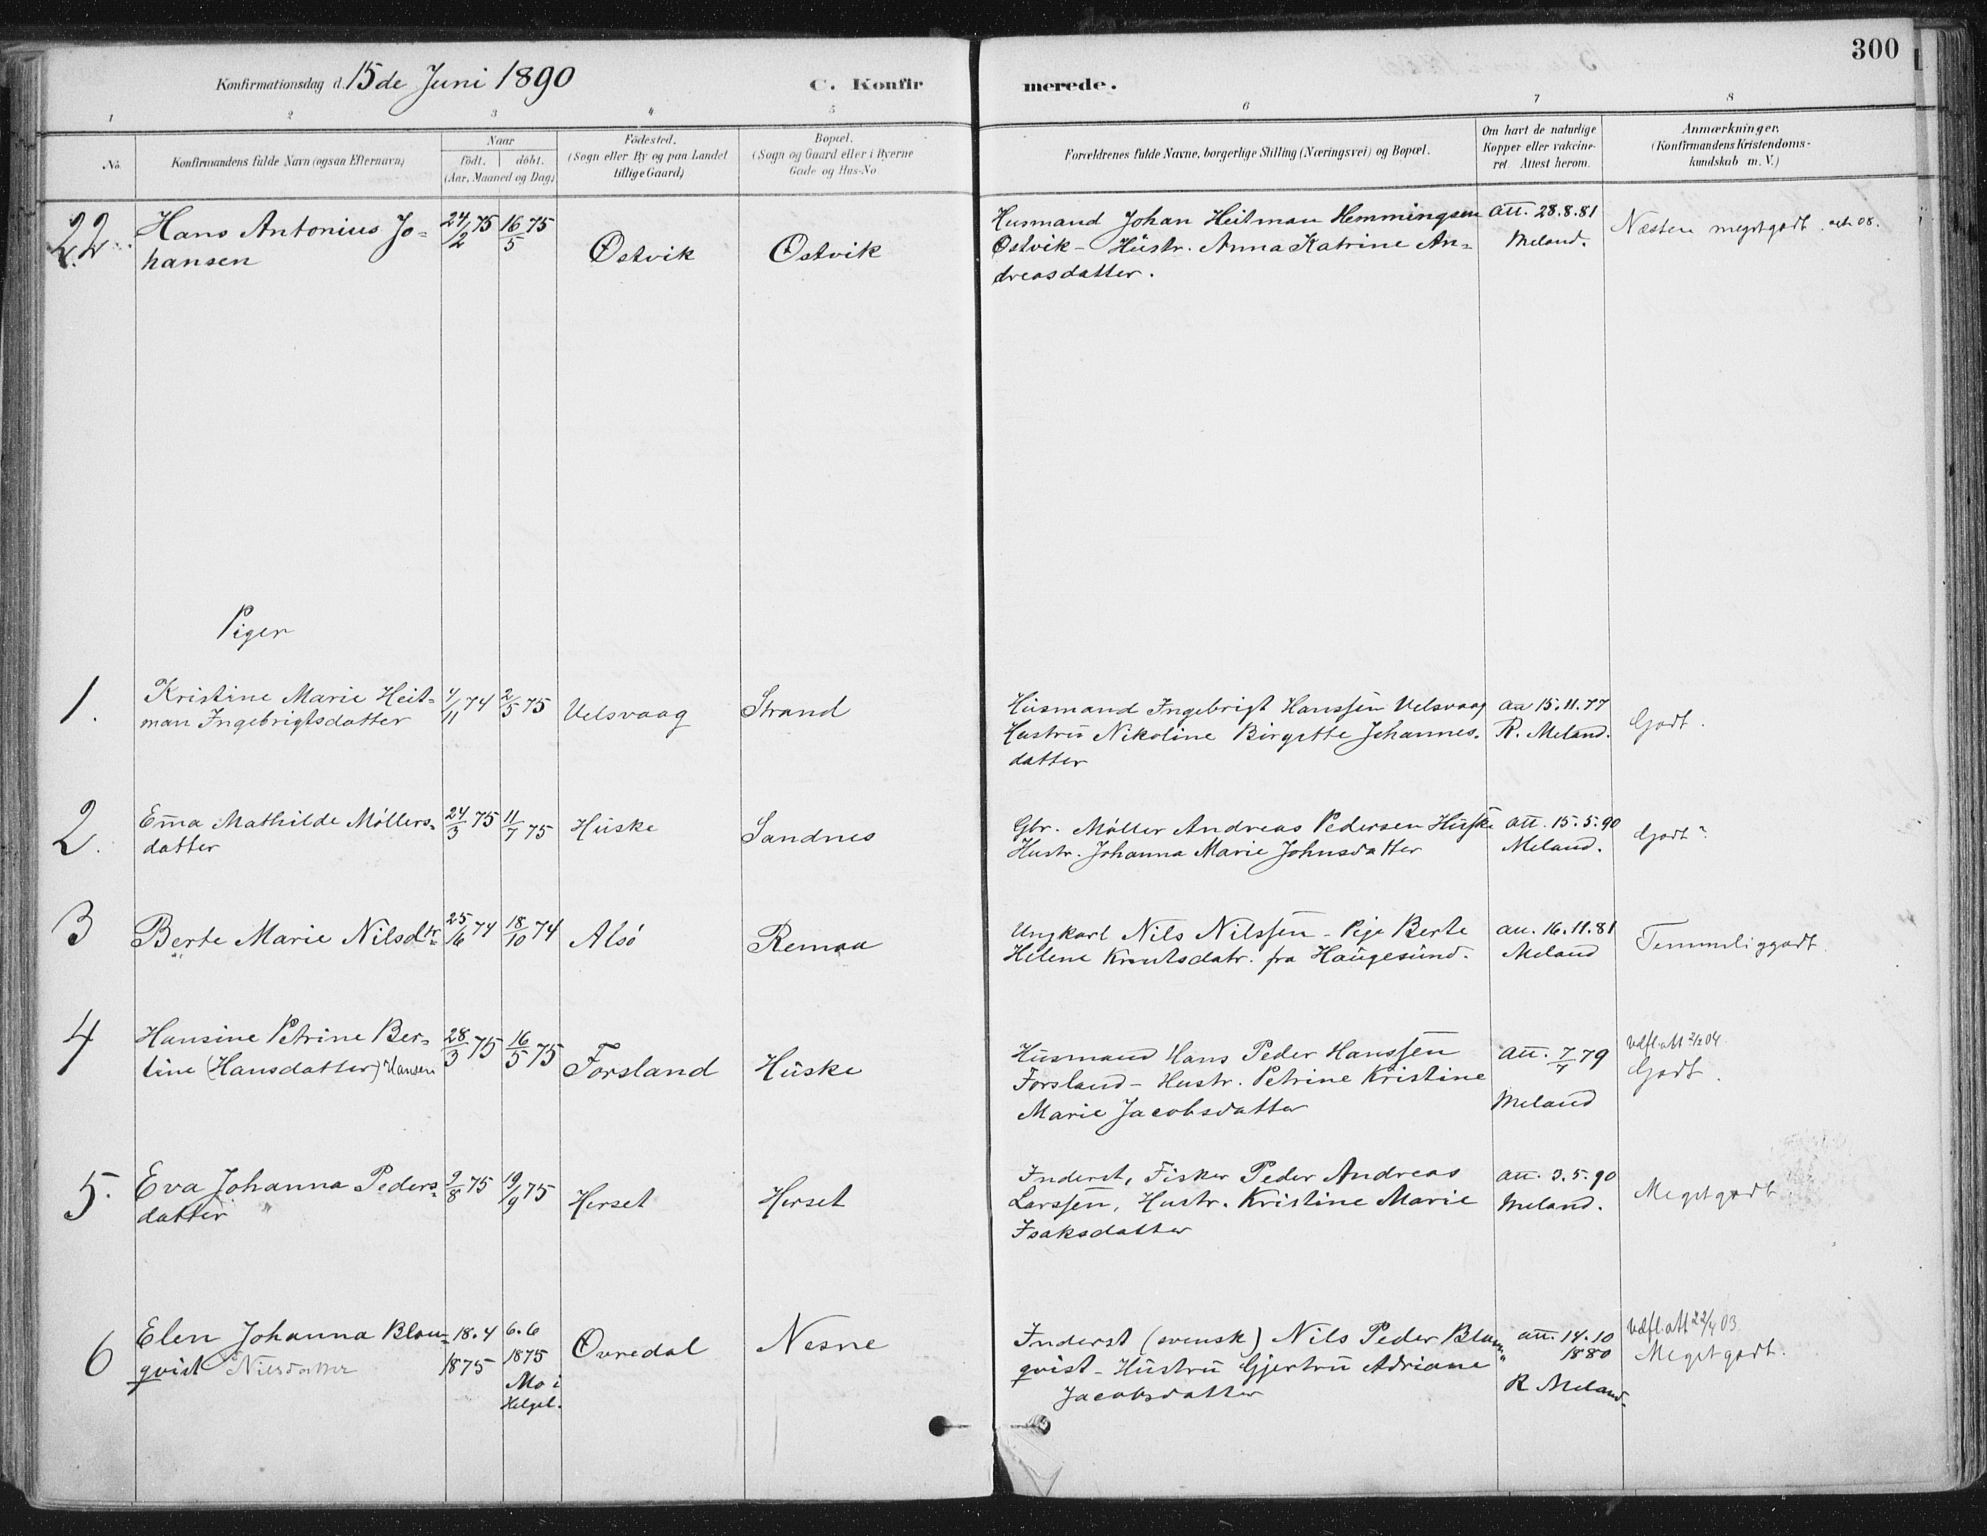 300
Konfirmationsdag d. 15de Juni 1890 C. Konfirmerede.
1 2 3 4 5 6 7 8
No. Konfirmandens fulde Navn (ogsaa Efternavn) Naar født. døbt. (Aar, Maaned og Dag) Fødested. (Sogn eller By og paa Landet tillige Gaard) Bopæl. (Sogn og Gaard eller i Byerne Gade og Hus-No Forældrenes fulde Navne, borgerlige Stilling (Næringsvei) og Bopæl. Om havt de naturlige Kopper eller vakcineret. Attest herom. Anmærkninger. (Konfirmandens Kristendomskundskab m. V.)
22. Hans Antonius Jo- 24/2 75 16/5 75 Østvik Østvik Husmand Johan Heitman Hemmingsen att. 28.8.81 Næsten megetgodt.
hansen Østvik - Hustr. Anna Katrine An- Meland.
dreasdatter.
Piger
1. Kristine Marie Heit- 4/11 74 2/5 75 Velsvaag Strand Husmand Ingebrigt Hanssen Velsvaag att 15.11.77 Godt.
man Ingebrigtsdatter Hustru Nikoline Birgitte Johannes- R. Meland.
datter
2. Emma Mathilde Møllers- 24/3 75 11/7 75 Huske Sandnes Gbr. Møller Andreas Pedersen Huske att. 15.5.90 Godt
datter Hustr. Johanna Marie Johnsdatter Meland.
3 Berte Marie Nilsdtr 25/6 74 18/10 74 Alsø Remaa Ungkarl Nils Nilssen - Pige Berte att. 16.11.81 Temmeliggodt.
Helene Knutsdatr. fra Haugesund. Meland
4 Hansine Petrine Ber- 28/3 75 16/5 75 Forsland Huske Husmand Hans Peder Hanssen att. 7/7 79 Udfl. att 2/2 04
tine (Hansdatter) Hansen Forsland - Hustr. Petrine Kristine Godt.
Marie Jacobsdatter Meland
5. Eva Johanna Peders- 9/8 75 19/9 75 Herset Herset Inderst, Fisker Peder Andreas att. 3.5.90 Megetgodt
datter Larssen, Hustr. Kristine Marie Meland.
Isaksdatter
6 Elen Johanna Blom- 18.4 6.6 Øvredal Nesne Inderst (svensk) Nils Peder Blom- att. 14.10 Udfl. att 22/4 03
qvist Nilsdatter 1875 1875 qvist - Hustru Gjertru Adriane 1880 Megetgodt.
Mo i Jacobsdatter R Meland.
Helgel.